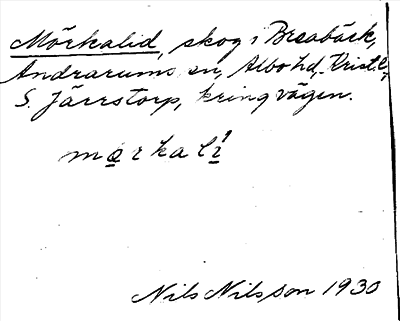 Mörkalid, skog i Breabäck,
Andrarums sn, Albo hd, Krist. l,
S. Järrstorp, kring vägen.
mørkalı̍
Nils Nilsson 1930